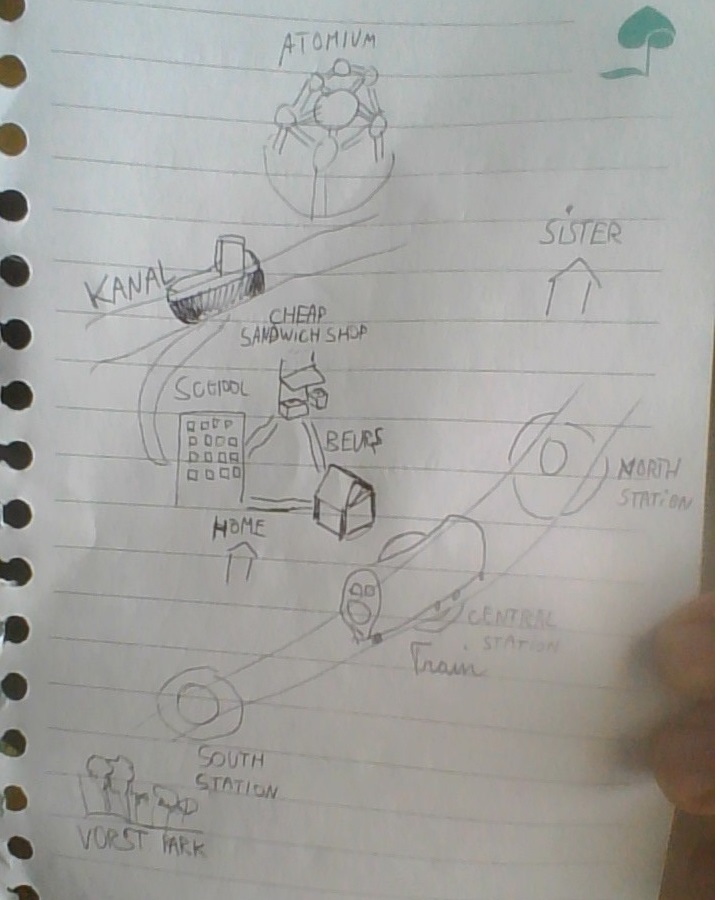 ATOMIUM
SISTER
KANAL
CHEAP
SANDWICH SHOP
SCHOOL
BEURS
NORTH
STATION
HOME
CENTRAL
STATION
Train
SOUTH
STATION
VORST PARK